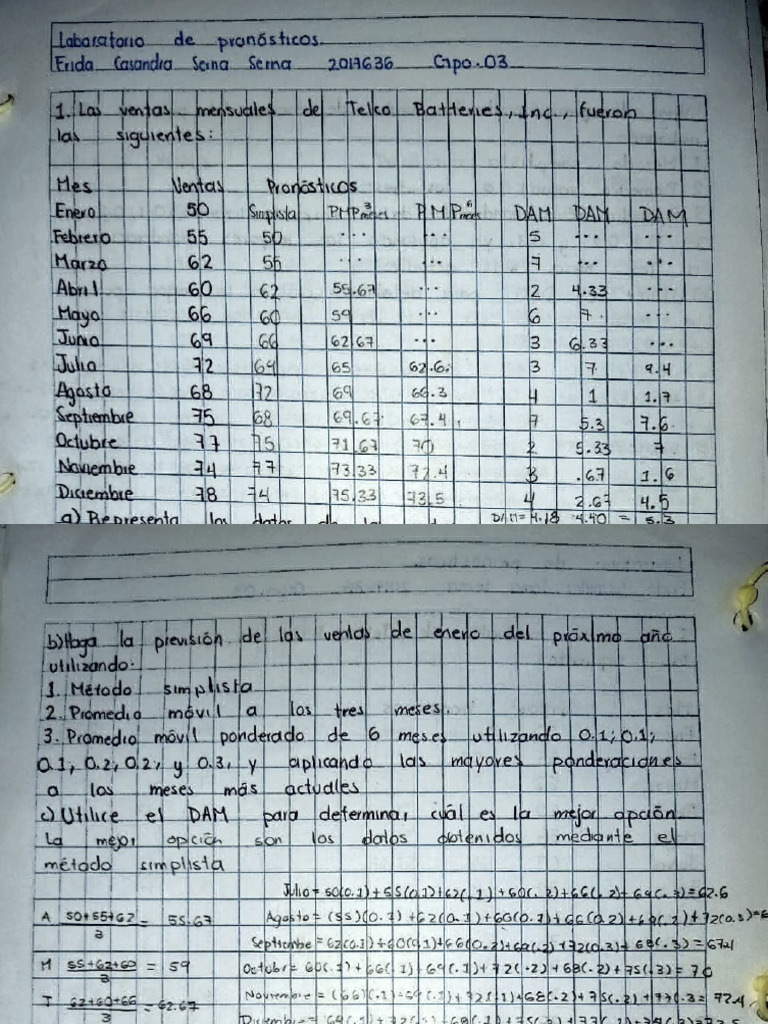 Laboratorio de pronósticos.
Erida Casandra Serna Serna 2017636 Gpo.03
1. Las ventas mensuales de Telco Batteries, Inc., fueron
las siguientes:
Mes Ventas Pronósticos
Enero 50 Simplista PMP3meses PMP6meses DAM DAM DAM
Febrero 55 50 ... ... 5 ... ...
Marzo 62 55 ... ... 7 ... ...
Abril 60 62 55.67 ... 2 4.33 ...
Mayo 66 60 59 ... 6 7 ...
Junio 69 66 62.67 ... 3 6.33 ...
Julio 72 69 65 62.6 3 7 9.4
Agosto 68 72 69 66.3 4 1 1.7
Septiembre 75 68 69.67 67.4 7 5.3 7.6
Octubre 77 75 71.67 70 2 5.33 7
Noviembre 74 77 73.33 72.4 3 .67 1.6
Diciembre 78 74 75.33 73.5 4 2.67 4.5
a) Representa los datos de DAM=4.18 4.40 = 5.3
b) Haga la previsión de las ventas de enero del próximo año
utilizando:
1. Método simplista
2. Promedio móvil a los tres meses.
3. Promedio móvil ponderado de 6 meses utilizando 0.1; 0.1;
0.1, 0.2, 0.2, y 0.3, y aplicando las mayores ponderaciones
a los meses más actuales
c) Utilice el DAM para determinar cuál es la mejor opción
La mejor opción son los datos obtenidos mediante el
método simplista
Julio = 50(0.1)+55(0.1)+62(.1)+60(.2)+66(.2)+69(.3)=62.6
A 50+55+62/3 = 55.67 Agosto = (55)(0.1)+62(0.1)+60(0.1)+66(0.2)+69(.2)+72(0.3)=6
Septiembe = 62(0.1)+60(0.1)+66(0.2)+69(.2)+72(0.3)+68(.3)=67.4
M 55+62+60/3 = 59 Octubr= 60(.1)+66(.1)+69(.1)+72(.2)+68(.2)+75(.3)=70
J 62+60+66/3 = 62.67 Noviembre = (66)(.1)+69(.1)+72(.1)+68(.2)+75(.2)+77(.3= 72.4